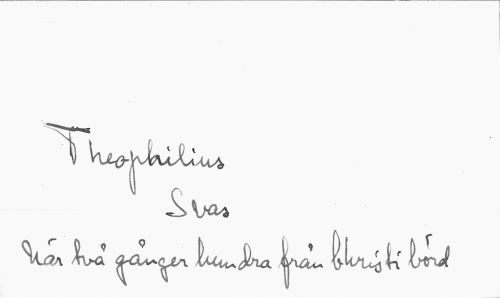 Theophilius
Svas
När två gånger hundra från Khristi börd